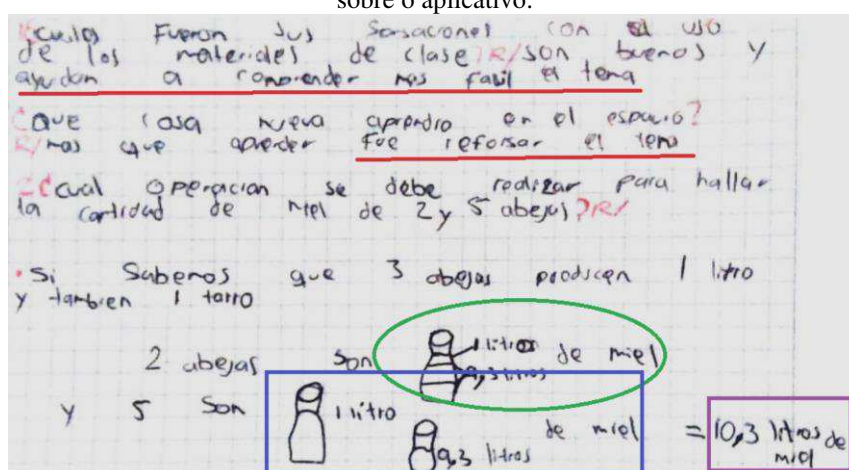 sobre o aplicativo.
¿Cuales Fueron sus sensaciones con el uso
de los materiales de clase? R/ son buenos y
ayudan a comprender mas facil el tema
¿Que cosa nueva aprendio en el espacio?
R/ mas que aprender fue reforsar el tema
¿Cual operacion se debe realizar para hallar
la cantidad de miel de 2 y 5 abejas? R/
• Si Sabemos que 3 abejas producen 1 litro
y tambien 1 tarro
2 abejas son 1 litros de miel
9,3 litros
y 5 son 1 litro de miel = 10,3 litros de
9,3 litros miel